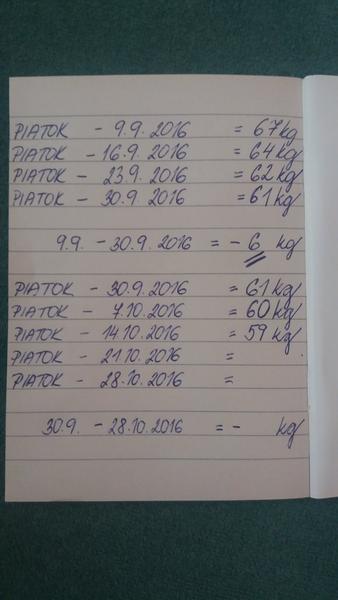 PIATOK - 9.9.2016 = 67kg
PIATOK - 16.9.2016 = 64kg
PIATOK - 23.9.2016 = 62kg
PIATOK - 30.9.2016 = 61kg
9.9. - 30.9.2016 = - 6 kg
PIATOK - 30.9.2016 = 61kg
PIATOK - 7.10.2016 = 60kg
PIATOK - 14.10.2016 = 59kg
PIATOK - 21.10.2016 =
PIATOK - 28.10.2016 =
30.9. - 28.10.2016 = - kg